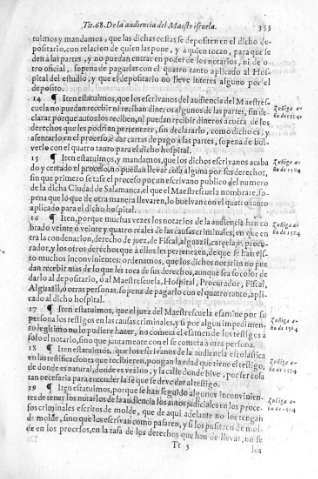 Tit. 68. De la audiencia del Maestrescuela. 353
tuimos y mandamos, que las dichas costas se depositen en el dicho de-
positario, con relacion de quien las pone, y a quien tocan, para que se
den a las partes, y no puedan entrar en poder de los notarios, ni de o-
tro oficial, so pena de pagarlas con el quatro tanto aplicado al Hos-
pital del estudio, y que el depositario no lleve interes alguno por el
deposito.
14 ¶ Iten estatuimos, que los escrivanos del audiencia del Maestres
cuela no puedan recebir ni reciban dineros algunos de las partes, sin de-
clarar porque autos los reciben, ni puedan recibir dineros a cuenta de los
derechos que les podrian pertenecer, sin declararlo, como dicho es, y
asentarlo en el processo, e dar cartas de pago a las partes, so pena de bol-
verlo con el quatro tanto para el dicho hospital.
15 ¶ Iten estatuimos, y mandamos, que los dichos escrivanos acaba
do y cerrado el processo, no puedan llevar cosa alguna por sus derechos,
sin que primero se tasse el processo por un escrivano publico del numero
de la dicha Ciudad de Salamanca, el que el Maestrescuela nombrare, so
pena que lo que de otra manera llevaren, lo buelvan con el quatro tanto
aplicado para el dicho hospital.
16 ¶ Iten, porque muchas vezes los notarios de la audiencia han co
brado veynte o veynte y quatro reales de las causas criminales, en que en-
tra la condenacion, derecho de juez, de Fiscal, alguazil, carcelaje, procu-
rador, y los otros derechos que a ellos les pertenecen, de que se han
to muchos inconvenientes: ordenamos, que los dichos notarios no pue-
dan recebir mas de lo que les toca de sus derechos, aunque sea so color de
darlo al depositario, o al Maestrescuela, Hospital, Procurador, Fiscal,
Alguazil, o otras personas, so pena de pagarlo con el quatro tanto, apli-
cado al dicho hospital.
17 ¶ Iten estatuimos, que el juez del Maestrescuela examine por su
persona los testigos en las causas criminales, y si por algun impedimen-
to legitimo no lo pudiere hazer, no cometa el examen de los testigos a
solo el notario, sino que juntamente con el se cometa a otra persona.
18 ¶ Iten estatuimos, que los escrivanos de la audiencia escolastica
en las ratificaciones que recibieren, pongan la edad que tiene el testigo,
de donde es natural, donde es vezino, y la calle donde bive, por ser cosa
tan necesaria para entender la fè que se deve dar al testigo.
19 ¶ Iten estatuimos, porque se han seguido algunos inconvenien-
tes de tener los notarios de la audiencia los autos judiciales en los proces-
sos criminales escritos de molde, que de aqui adelante no los tengan
de molde, sino que los escrivan como passaren, y si los pusieren de mol-
de en los processos, en la tasa de los derechos que han de llevar, no se
Tt 3